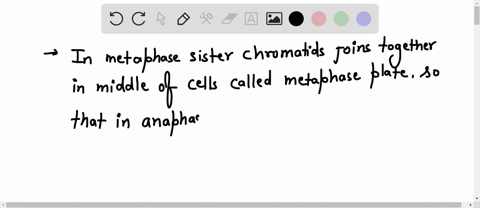 → In metaphase sister chromatids joins together
in middle of cells called metaphase plate. so
that in anaphas